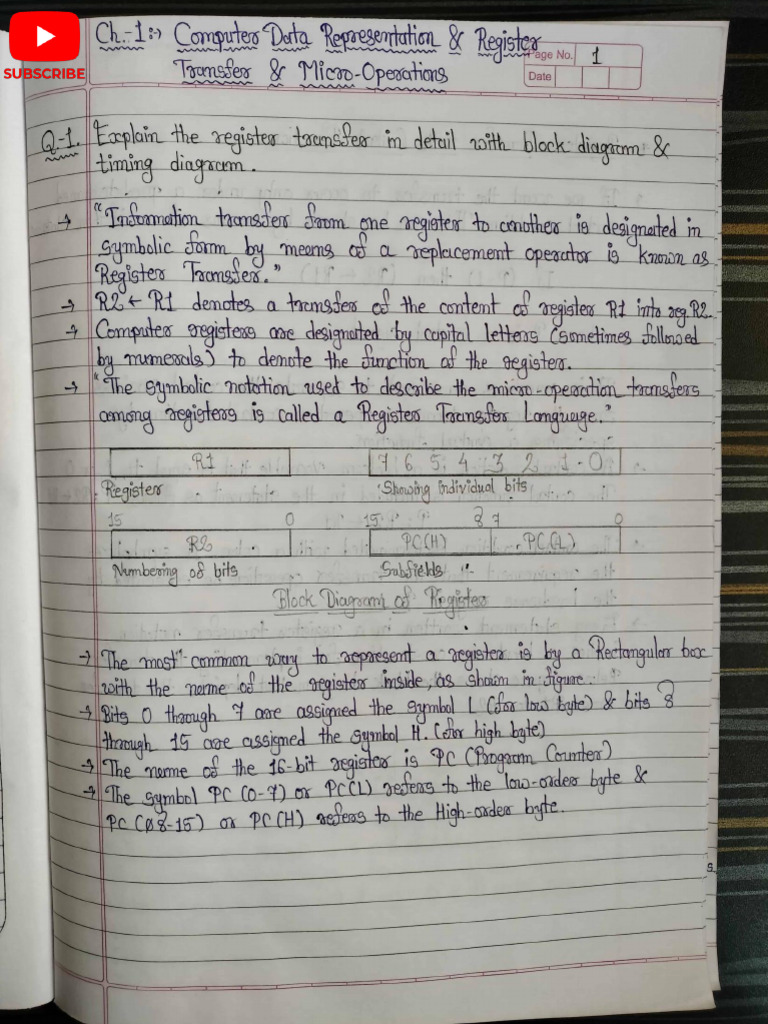 SUBSCRIBE
Ch.-1:-) Computer Data Representation & Register
Transfer & Micro-Operations
Page No. 1
Date
Q-1. Explain the register transfer in detail with block diagram &
timing diagram.
→ "Information transfer from one register to another is designated in
symbolic form by means of a replacement operator is known as
Register Transfer."
→ R2 ← R1 denotes a transfer of the content of register R1 into reg.R2.
→ Computer registers are designated by capital letters (sometimes followed
by numerals) to denote the function of the register.
→ "The symbolic notation used to describe the micro-operation transfers
among registers is called a Register Transfer Language."
R1 7 6 5 4 3 2 1 0
Register Showing individual bits
15 0 15 8 7 0
R2 PC(H) PC(L)
Numbering of bits Subfields
Block Diagram of Register
→ The most common way to represent a register is by a Rectangular box
with the name of the register inside, as shown in figure.
→ Bits 0 through 7 are assigned the symbol L (for low byte) & bits 8
through 15 are assigned the symbol H. (for high byte)
→ The name of the 16-bit register is PC (Program Counter)
→ The symbol PC (0-7) or PC(L) refers to the low-order byte &
PC (08-15) or PC(H) refers to the High-order byte.